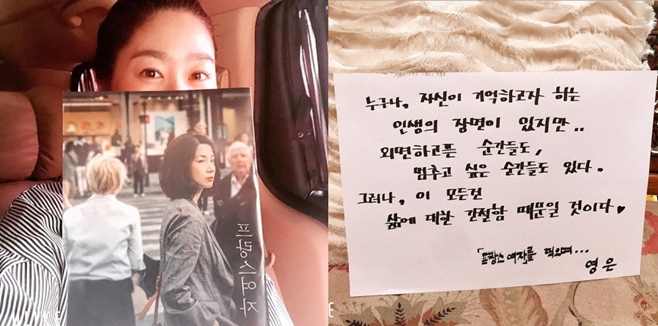 프랑스여자
누구나, 자신이 기억하고자 하는
인생의 장면이 있지만..
외면하고픈 순간들도,
멈추고 싶은 순간들도 있다.
그러나, 이 모든건
삶에 대한 간절함 때문일 것이다♥
「프랑스 여자」를 찍으며...
영은